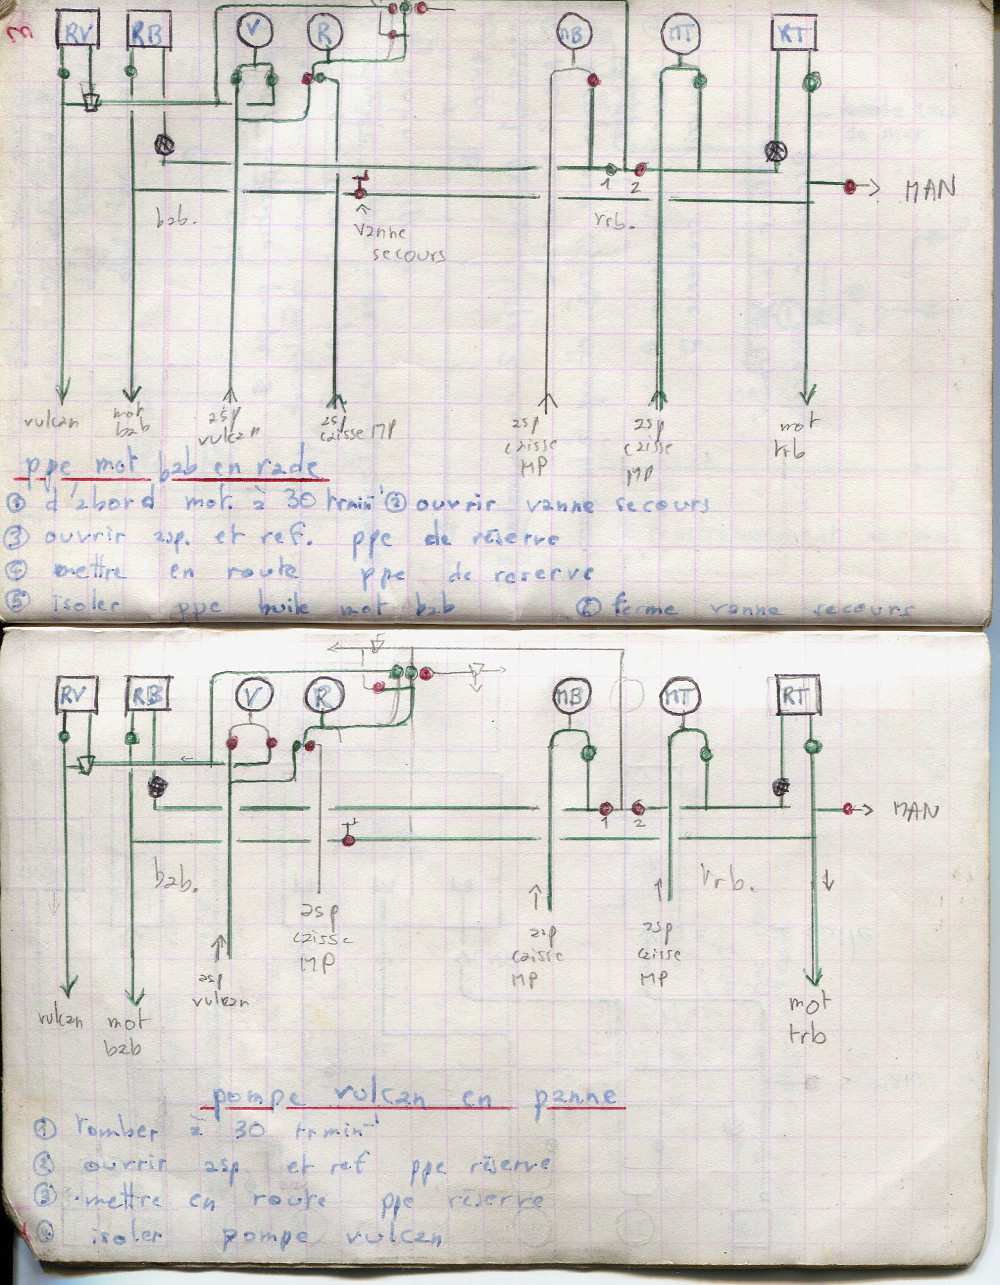 3
RV RB V R MB MT RT
1 2
MAN
bab.
vanne
secours
trb.
vulcan
mot
bab
asp
vulcan
asp
caisse MP
asp
caisse
MP
asp
caisse
MP
mot
trb
ppe mot bab en rade
① d'abord mot. à 30 trmin⁻¹ ② ouvrir vanne secours
③ ouvrir asp. et ref. ppe de réserve
④ mettre en route ppe de reserve
⑤ isoler ppe huile mot bab ⑥ ferme vanne secours
RV RB V R MB MT RT
1 2
MAN
bab.
trb.
asp
caisse
MP
asp
caisse
MP
asp
caisse
MP
asp
vulcan
vulcan
mot
bab
mot
trb
pompe vulcan en panne
① tomber à 30 trmin⁻¹
② ouvrir asp. et ref ppe réserve
③ mettre en route ppe réserve
④ isoler pompe vulcan